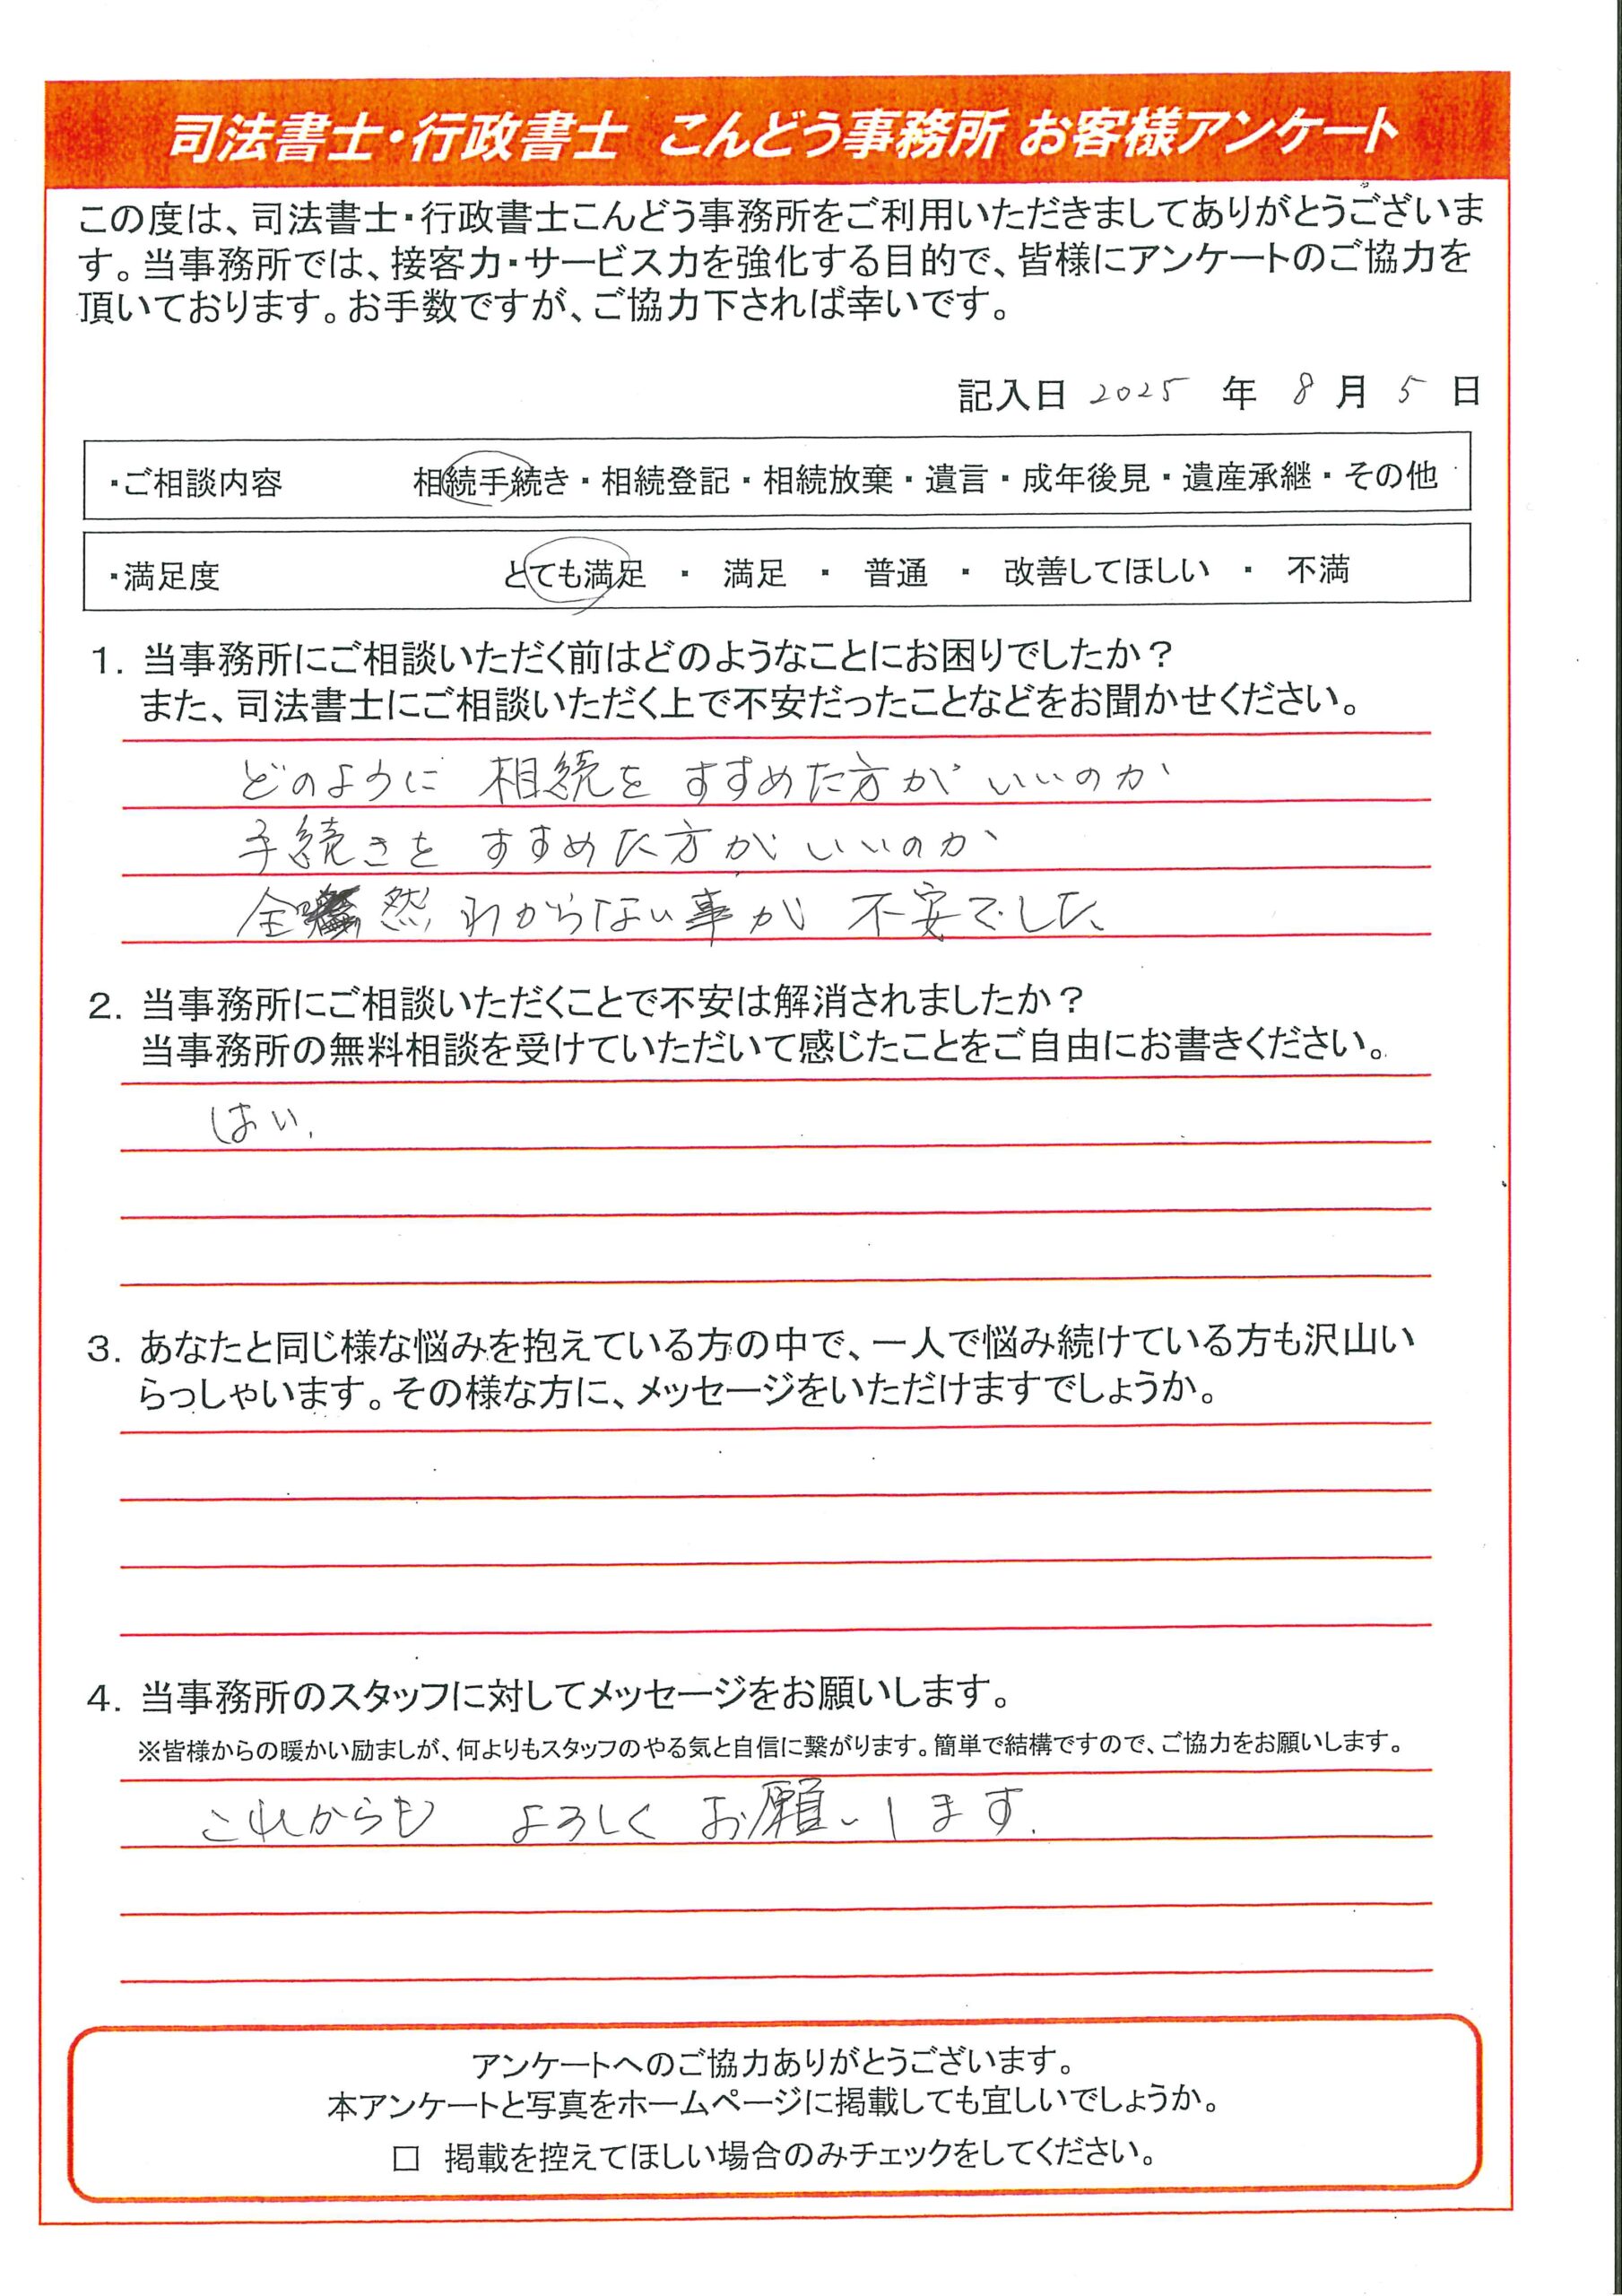 司法書士・行政書士 こんどう事務所 お客様アンケート
この度は、司法書士・行政書士こんどう事務所をご利用いただきましてありがとうございま
す。当事務所では、接客力・サービス力を強化する目的で、皆様にアンケートのご協力を
頂いております。お手数ですが、ご協力下されば幸いです。
記入日 2025 年 8 月 5 日
・ご相談内容 相続手続き・相続登記・相続放棄・遺言・成年後見・遺産承継・その他
・満足度 とても満足 ・ 満足 ・ 普通 ・ 改善してほしい ・ 不満
1. 当事務所にご相談いただく前はどのようなことにお困りでしたか?
また、司法書士にご相談いただく上で不安だったことなどをお聞かせください。
どのように 相続を すすめた方が いいのか
手続きを すすめた方が いいのか
全然 わからない事が 不安でした
2. 当事務所にご相談いただくことで不安は解消されましたか?
当事務所の無料相談を受けていただいて感じたことをご自由にお書きください。
はい.
3. あなたと同じ様な悩みを抱えている方の中で、一人で悩み続けている方も沢山い
らっしゃいます。その様な方に、メッセージをいただけますでしょうか。
4. 当事務所のスタッフに対してメッセージをお願いします。
※皆様からの暖かい励ましが、何よりもスタッフのやる気と自信に繋がります。簡単で結構ですので、ご協力をお願いします。
これからも よろしく お願いします.
アンケートへのご協力ありがとうございます。
本アンケートと写真をホームページに掲載しても宜しいでしょうか。
□ 掲載を控えてほしい場合のみチェックをしてください。